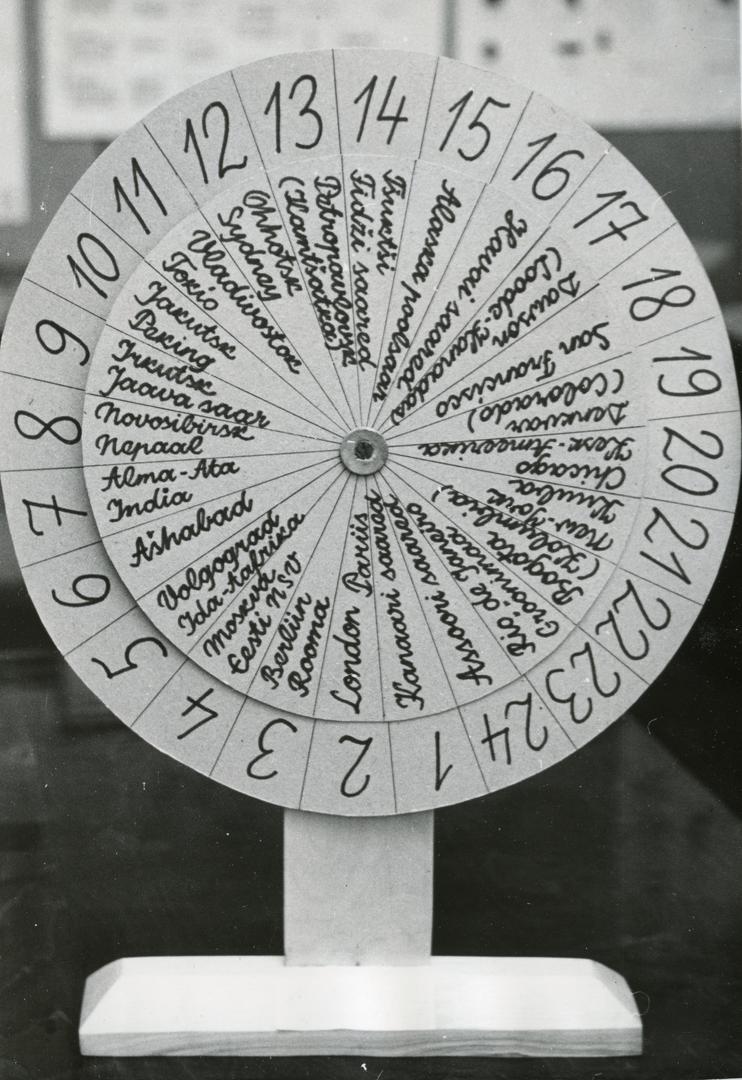 1
2
3
4
5
6
7
8
9
10
11
12
13
14
15
16
17
18
19
20
21
22
23
24
London Pariis
Berliin
Rooma
Moskva
Eesti NSV
Volgograd
Ida-Aafrika
Ašhabad
Alma-Ata
India
Novosibirsk
Nepaal
Irkutsk
Jaava saar
Jakutsk
Peking
Tokio
Vladivostok
Sydney
Ohhotsk
(Kamtšatka)
Petropavlovsk
Fidži saared
Alaska poolsaar
Havai saared
(Loode-Kanadas)
Dawson
San Francisco
(Colorado)
Denver
Kesk-Ameerika
Chicago
Kuuba
New-York
(Kolumbia)
Bogota
Gröönimaa
Rio de Janeiro
Assoori saared
Kanaari saared